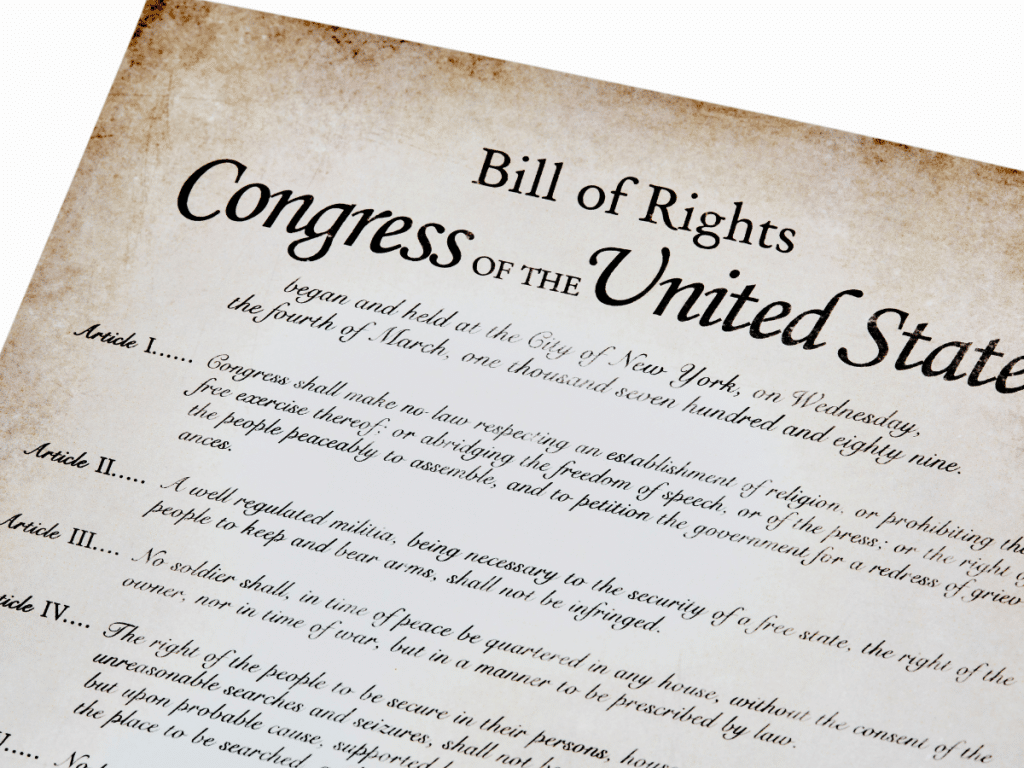 Bill of Rights
Congress OF THE United State
began and held at the City of New York, on Wednesday,
the fourth of March, one thousand seven hundred and eighty nine.
Article I...... Congress shall make no law respecting an establishment of religion, or prohibiting the
free exercise thereof; or abridging the freedom of speech, or of the press; or the right o
the people peaceably to assemble, and to petition the government for a redress of griev-
ances.
Article II...... A well regulated militia, being necessary to the security of a free state, the right of the
people to keep and bear arms, shall not be infringed.
Article III.... No soldier shall, in time of peace be quartered in any house, without the consent of the
owner, nor in time of war, but in a manner to be prescribed by law.
ticle IV.... The right of the people to be secure in their persons, hous
unreasonable searches and seizures, shall not b
but upon probable cause, supported b
the place to be searched,
No